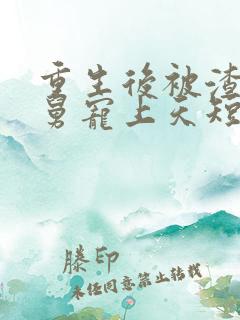 重生後被渣
舅寵上天短
滕印
未经同意禁止转载